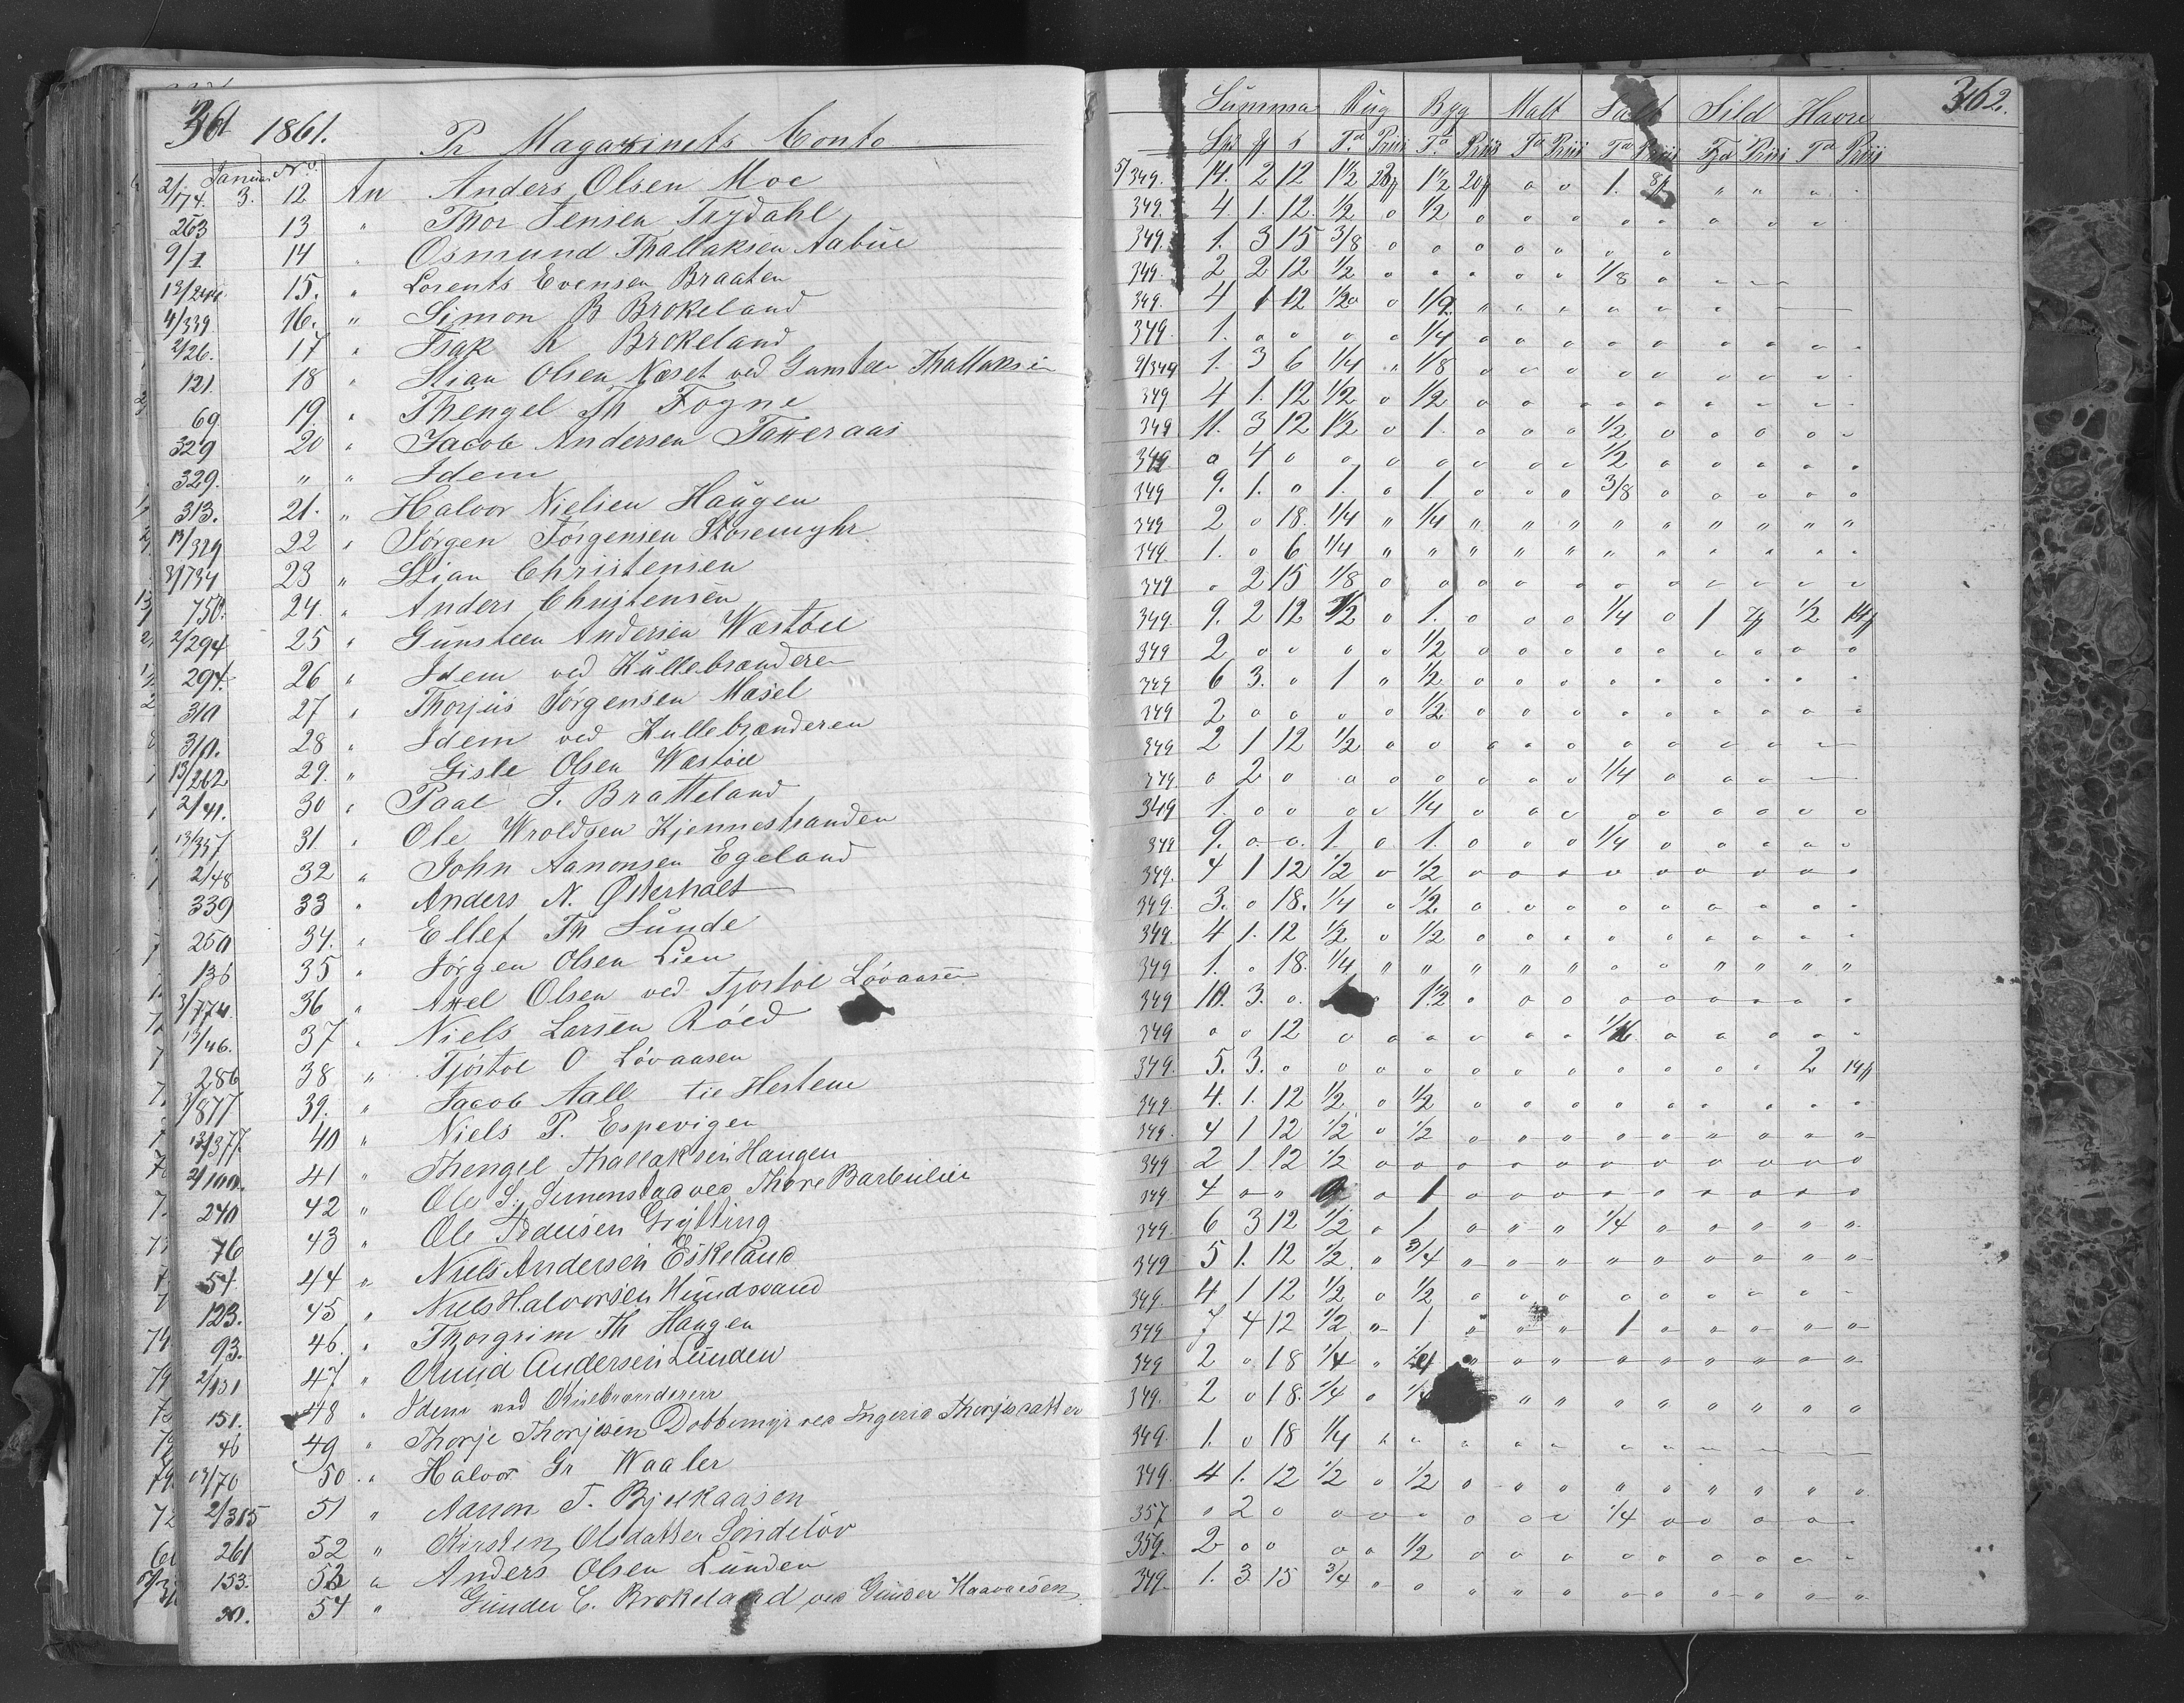 361 1861. Pr Magazinets Conto
Januar No.
2/174. 3. 12 An Anders Olsen Moe
263 13 " Thor Jensen Trydahl
9/1 14 " Osmund Thallaksen Aabue
15. " Lorents Evensen Braaten
4/339. 16. " Simon B Brokeland
2/26. 17 " Isak K Brokeland
121. 18 " Stian Olsen Næset ved Gunsten Thallaksen
69. 19. " Thengel Th Fogne
329 20 " Jacob Andersen Taxeraas
329. " " Idem
313. 21. " Halvor Nielsen Haugen
13/329 22 " Jørgen Jørgensen Storemyhr
3/734 23 " Stian Christensen
750. 24. " Anders Christensen
2/294 25 " Gunsteen Andersen Westøel
294. 26 " Idem ved Kullebrænderen
310 27 " Thorjus Jørgensen Masel
310. 28 " Idem ved Kullebrænderen
13/262 29. " Gisle Olsen Westøel
2/41. 30 " Paal T. Bratteland
13/337 31 " Ole Wroldsen Kjennestranden
2/48 32 " John Aanonsen Egeland
339 33 " Anders N. Østerholt
250 34. " Ellef Th Sunde
136 35 " Jørgen Olsen Lien
3/774. 36 " Axel Olsen ved Tjøstol Løvaasen
13/46. 37 " Niels Larsen Røed
286 38 " Tjøstol O Løvaasen
3/877 39. " Jacob Aall til Hestene
13/377. 40 " Niels P. Espevigen
2/100. 41 " Thengel Thallaksen Haugen
240 42 " Ole S. Simonstad ved Thore Barbulien
76 43 " Ole Pedersen Grytting
54. 44 " Niels Andersen Eskeland
123. 45 " Niels Halvorsen Hundsvand
93. 46. " Thorgrim Th Haugen
2/151 47 " Knud Andersen Lunden
151. 48 " Idem ved Kullebrænderen
46 49 " Thorje Thorjesen Dobbemyr ved Ingerid Thorjesdatter
13/70 50. " Halvor Gr Waaler
2/315 51 " Aanon T. Bjelkaasen
261 52 " Kirsten Olsdatter Sondeløv
153. 53 " Anders Olsen Lunden
20. 54 " Gunder C. Brokeland ved Gunder Haavorsen
Summa Rug Byg Malt Salt Sild Havre 362.
Spd ƒ s Td Priis Td Priis Td Priis Td Priis Td Priis Td Priis
5/349. 14. 2 12 1½ 1½ 20ƒ o o 1. 8ƒ " " o .
349. 4. 1. 12. ½ o ½ o o o o o o o o
349. 1. 3 15 3/8 o o o o o o o
349. 2 2 12 ½ o o o o o 1/8 o
349. 4 1 12 ½ o ½
349. 1. o o o o ¼ o o o o o
9/349 1. 3 6 ¼ " 1/8 o o o o o
349 4 1. 12 ½ o ½ o o o o o
349 11. 3 12 1½ o 1. o o o ½ o o o o o
349 o 4 o o o o o o o ½ o o o o o
349 9. 1. o 1. o 1. o o o 3/8 o o o o o
349 2 o 18. ¼ " ¼ " " " " " " " " "
349. 1. o 6 ¼ " " " " " " " " " " "
349 o 2 15 1/8 o o o o o o o o o o o
349 9. 2 12 ½ o 1. o o o ¼ o 1 7ƒ ½ 14ƒ
349 2 o o o o ½ o o o o o o o o o
349 6 3. o 1 " ½ o o o o o o o o o
349 2 o o o o ½ o o o o o o o o o
349 2 1 12 ½ o o o o o o o o o o
349. o 2 o o o o o o o ¼ o o o
349 1. o o o o ¼ o o o o o o o o o
349 9. o o 1. o 1. o o o ¼ o o o o o
349. 4 1 12 ½ o ½ o o o o o o o o o
349. 3. o 18. ¼ o ½ o o o o o o o o o
349. 4 1. 12 ½ o ½ o o o o o o o o o
349 1. o 18. ¼ " " " " " o o " " " "
349 10. 3. o. o 1½ o o o o o o o o o
349 o o 12 o o o o o o 1/16 o o o o o
349. 5. 3. o o o o o o o o o o o 2 14ƒ
349 4. 1. 12 ½ o ½ o o o o o o o o o
349. 4 1 12 ½ o ½ o o o o o o o o o
349 2 1. 12 ½ o o o o o o o o o o o
349 4 o o o o 1 o o o o o o o o o
349. 6 3 12 ½ o 1 o o o ¼ o o o o o
349 5 1. 12 ½ " ¾ o o o o o o o o o
349. 4 1 12 ½ o ½ o o o o o o o o o
349 7 4 12 ½ " 1 " " " 1 o o o o o
349 2 o 18 ¼ " ¼ " " " o o o o o o
349. 2 o 18. ¼ o " " o o o " " o o
349. 1. o 18 ¼ o o o o o o
349. 4 1. 12 ½ o ½ o o o o o o o o o
357 o 2 o o o o o o o ¼ o o o o
359. 2 o o o o ½ o o o o o o o o
349. 1. 3 15 ¾ " o o o o o o o o o o